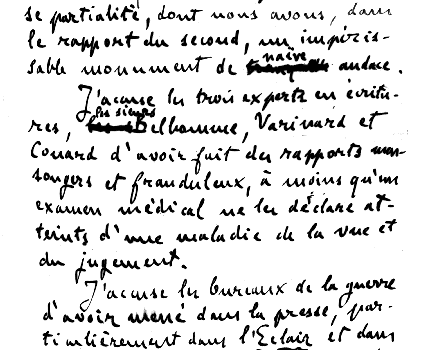 se partialité, dont nous avons, dans
le rapport du second, un impéris-
sable monument de naïve audace.
J'accuse les trois experts en écritu-
res, les sieurs Belhomme, Varinard et
Couard d'avoir fait des rapports men-
songers et frauduleux, à moins qu'un
examen médical ne les déclare at-
teints d'une maladie de la vue et
du jugement.
J'accuse les bureaux de la guerre
d'avoir mené dans la presse, par-
ticulièrement dans l'Eclair et dans